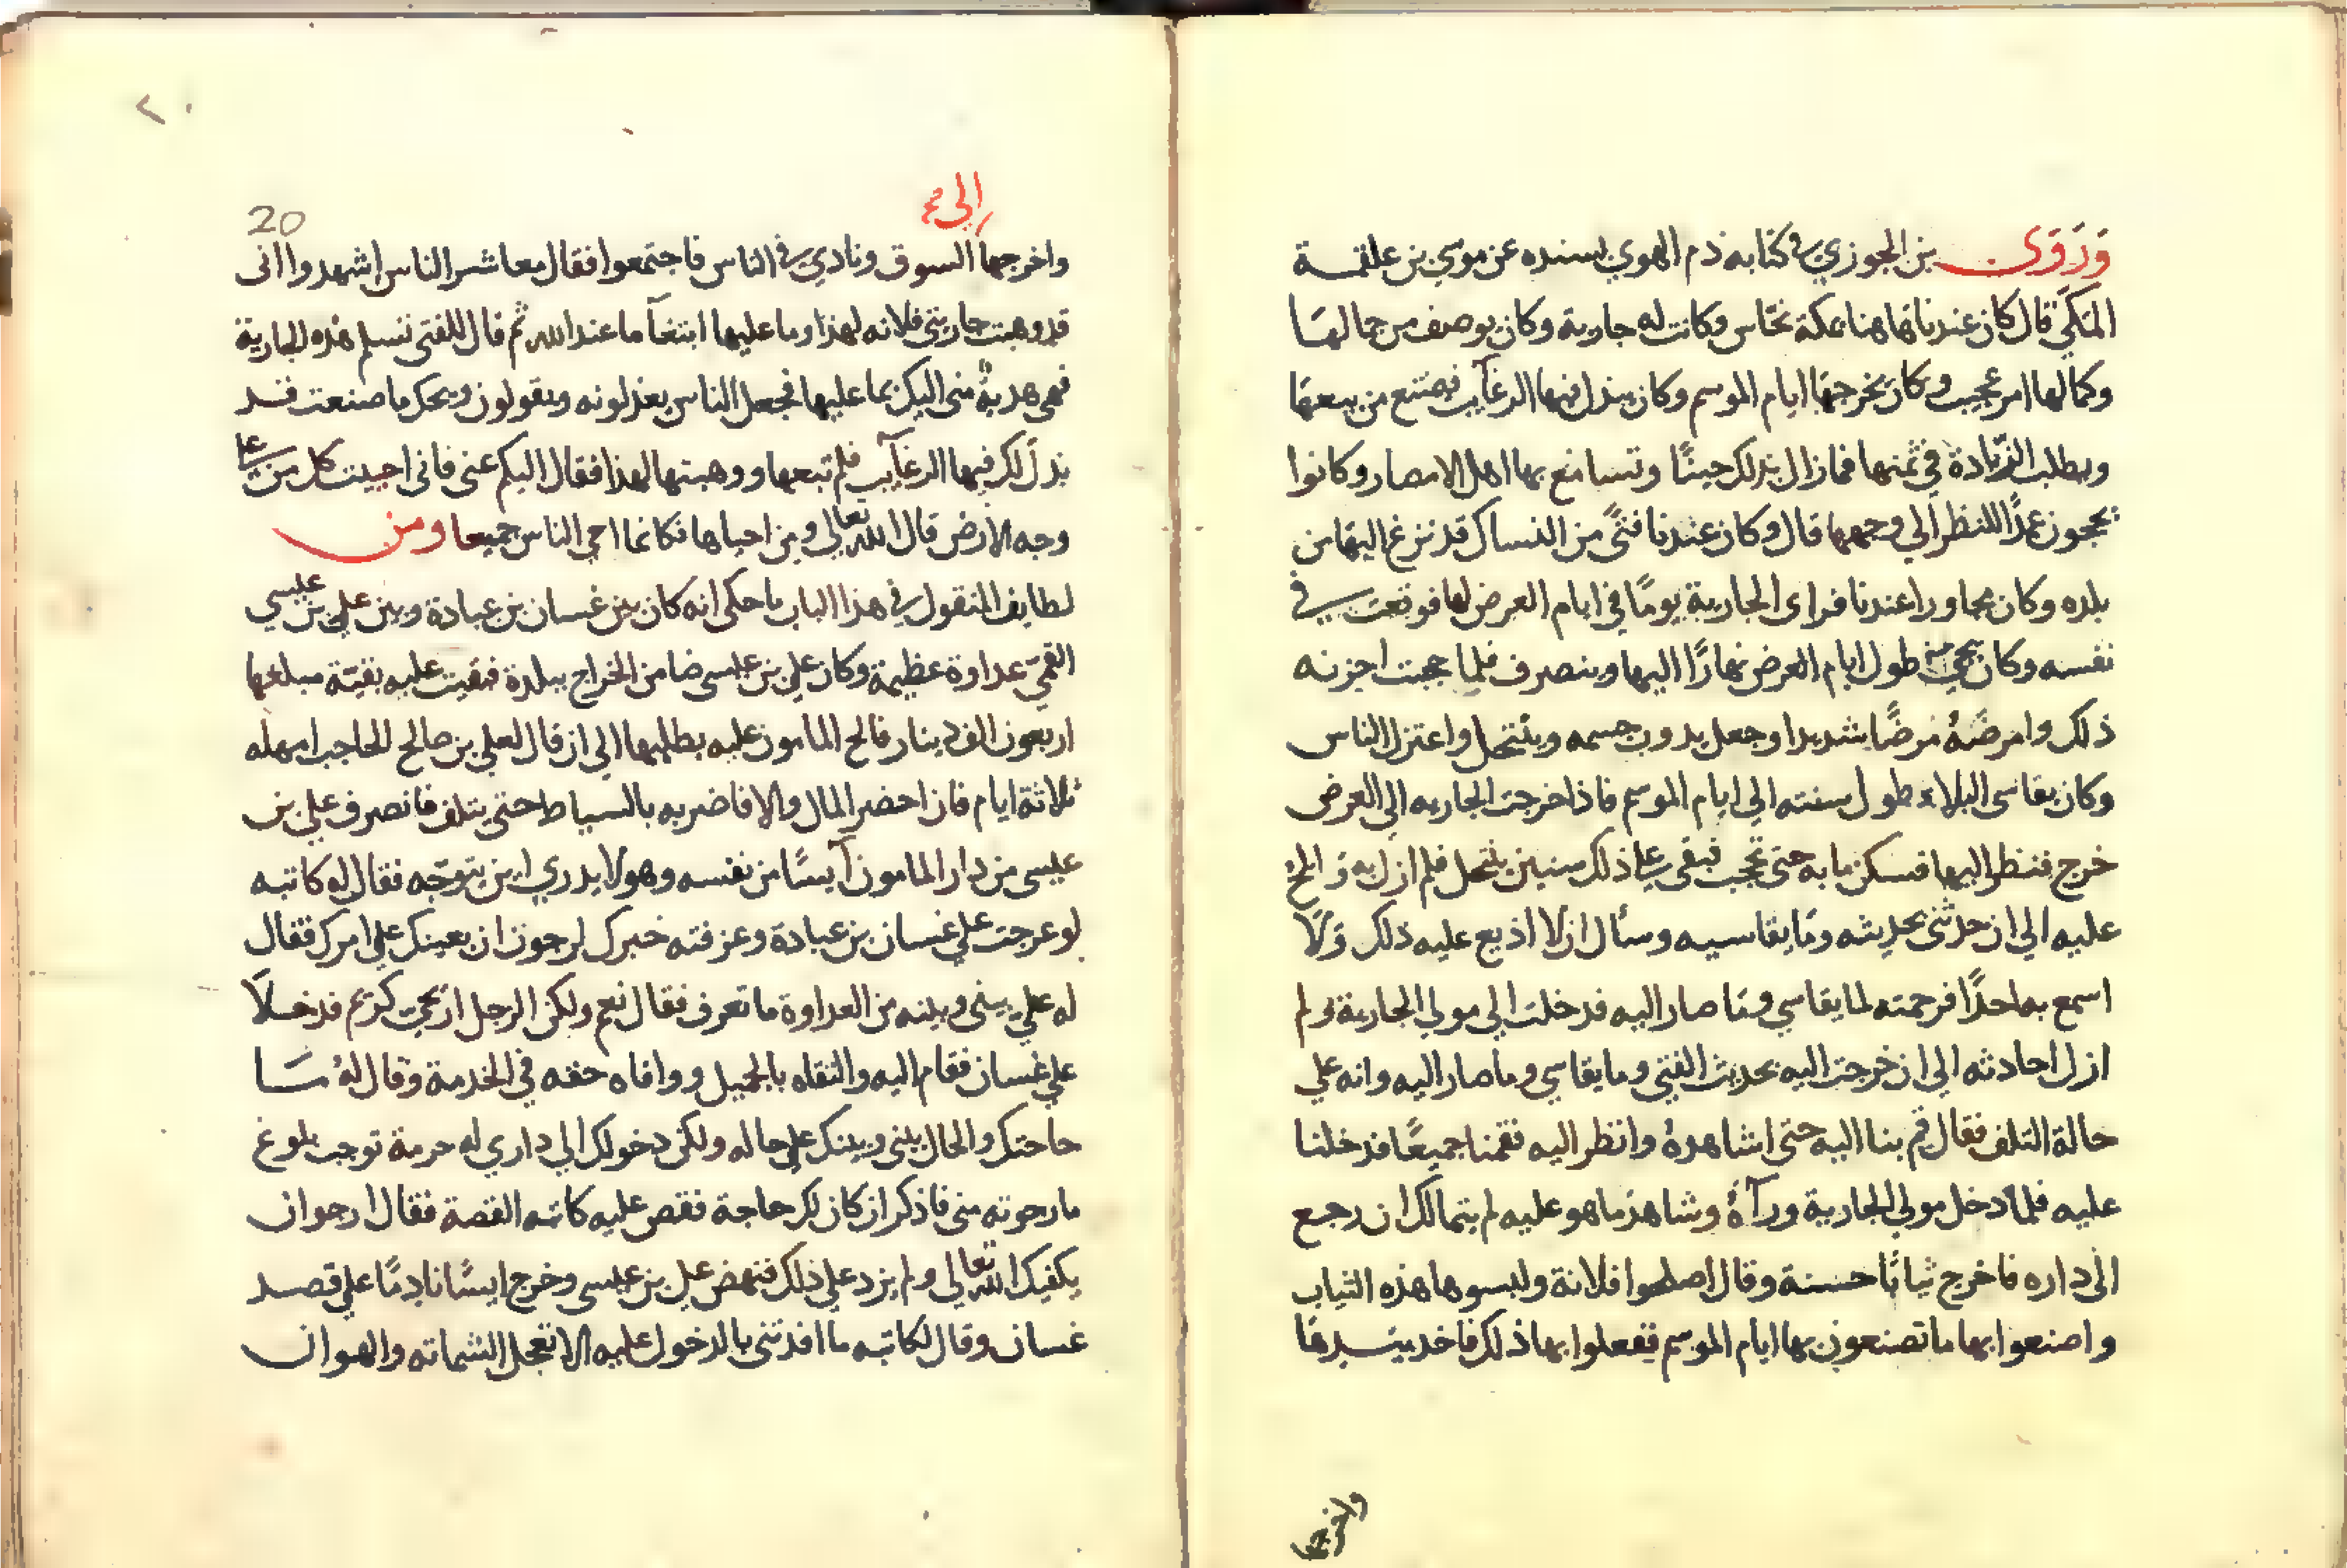 وَرَوَى بن الجوزي في كتابه ذم الهوي بسنده عن موسي بن علقمة
المكي قال كان عندنا هاهنا بمكة نخاس وكانت له جارية وكان يوصف من جمالها
وكمالها امر عجيب وكان يخرجها ايام الموسم وكان يبذل فيها الرغآيب فيمتنع من بيعها
ويطلب الزيادة في ثمنها فمازال بذلك حينًا وتسامع بها اهل الامصار وكانوا
يحجون عمدًا للنظر الي وجهها قال وكان عندنا فتىً من النساك قد نزع اليها من
بلده وكان مجاورا عندنا فراى الجارية يومًا في ايام العرض لها فوقعت في
نفسه وكان يجي طول ايام العرض نهارًا اليها وينصرف فلما حجبت احزنه
ذلك وامرضَهُ مرضًا شديدا وجعل يذوب جسمه وينتحل واعتزل الناس
وكان يقاسى البلاء طول سنته الي ايام الموسم فاذا خرجت الجاريه الي العرض
خرج فنظر اليها فسكن ما به حتى تحجب فبقى علي ذلك سنين ينتحل فلم ازل به والح
عليه الي ان حدثنى بحديثه وما يقاسيه وسأل ان لا اذيع عليه ذلك وَلَا
اسمع به احدًا فرحمته لما يقاسي وما صار اليه فدخلت الي مولي الجارية ولم
ازل احادثه الي ان خرجت اليه بحديث الفتى وما يقاسي وما صار اليه وانه علي
حالة التلف فقال قم بنا اليه حتى اشاهدهُ وانظر اليه فقمنا جميعًا فدخلنا
عليه فلما دخل مولي الجارية ورآهُ وشاهد ما هو عليه لم يتمالك ان رجع
الى داره فاخرج ثيابًا حسنة وقال اصلحوا فلانة ولبسوها هذه الثياب
واصنعوا بها ما تصنعون بها ايام الموسم ففعلوا بها ذلك فاخد بيدها
واخرجها
إلى
20
٢٠
واخرجها السوق ونادي في الناس فاجتمعوا فقال معاشر الناس اشهدوا انى
قد وهبت جاريتى فلانه لهذا وما عليها ابتغآ ما عند الله ثم قال للفتى تسلم هذه الجارية
فهى هدية منى اليك بما عليها فجعل الناس يعذلونه ويقولون ويحك ما صنعت قد
بذل لك فيها الرغآيب فلم تبعها ووهبتها لهذا فقال اليكم عنى فانى احييت كل من علي
وجه الارض قال الله تعالي ومن احياها فكانما احي الناس جميعا ومن
لطايف المنقول في هذا الباب ما حكى انه كان بين غسان بن عبادة وبين علي بن عيسي
القمي عداوة عظيمة وكان علي بن عيسى ضامن الخراج ببلدة فبقيت عليه بقيّة مبلغها
اربعون الف دينار فالح المامون عليه بطلبها الي ان قال لعلي بن صالح الحاجب امهله
ثلاثة ايام فان احضر المال والا فاضربه بالسياط حتى يتلف فانصرف علي بن
عيسى من دار المامون آيسًا من نفسه وهو لا يدري اين يتوجّه فقال له كاتبه
لو عرجت علي غسان بن عبادة وعرفته خبرك لرجون ان يعينك علي امرك فقال
له علي بينى وبينه من العداوة ما تعرف فقال نعم ولكن الرجل اريحي كريم فدخلَا
علي غسان فقام اليه والتقاه بالجميل ووافاه حقه في الخدمة وقال لهُ مَا
حاجتك والحال بينى وبينك علي حاله ولكن دخولك الي داري له حرمة توجب بلوغ
ما رجوته منى فاذكر ان كان لك حاجة فقص عليه كاتبه القصة فقال ارجو ان
يكفيك الله تعالي ولم يزد علي ذلك فنهض علي بن عيسى وخرج ايسًا نادمًا علي قصد
غسان وقال لكاتبه ما افدتنى بالدخول عليه الا تعجل الشماته والهوان